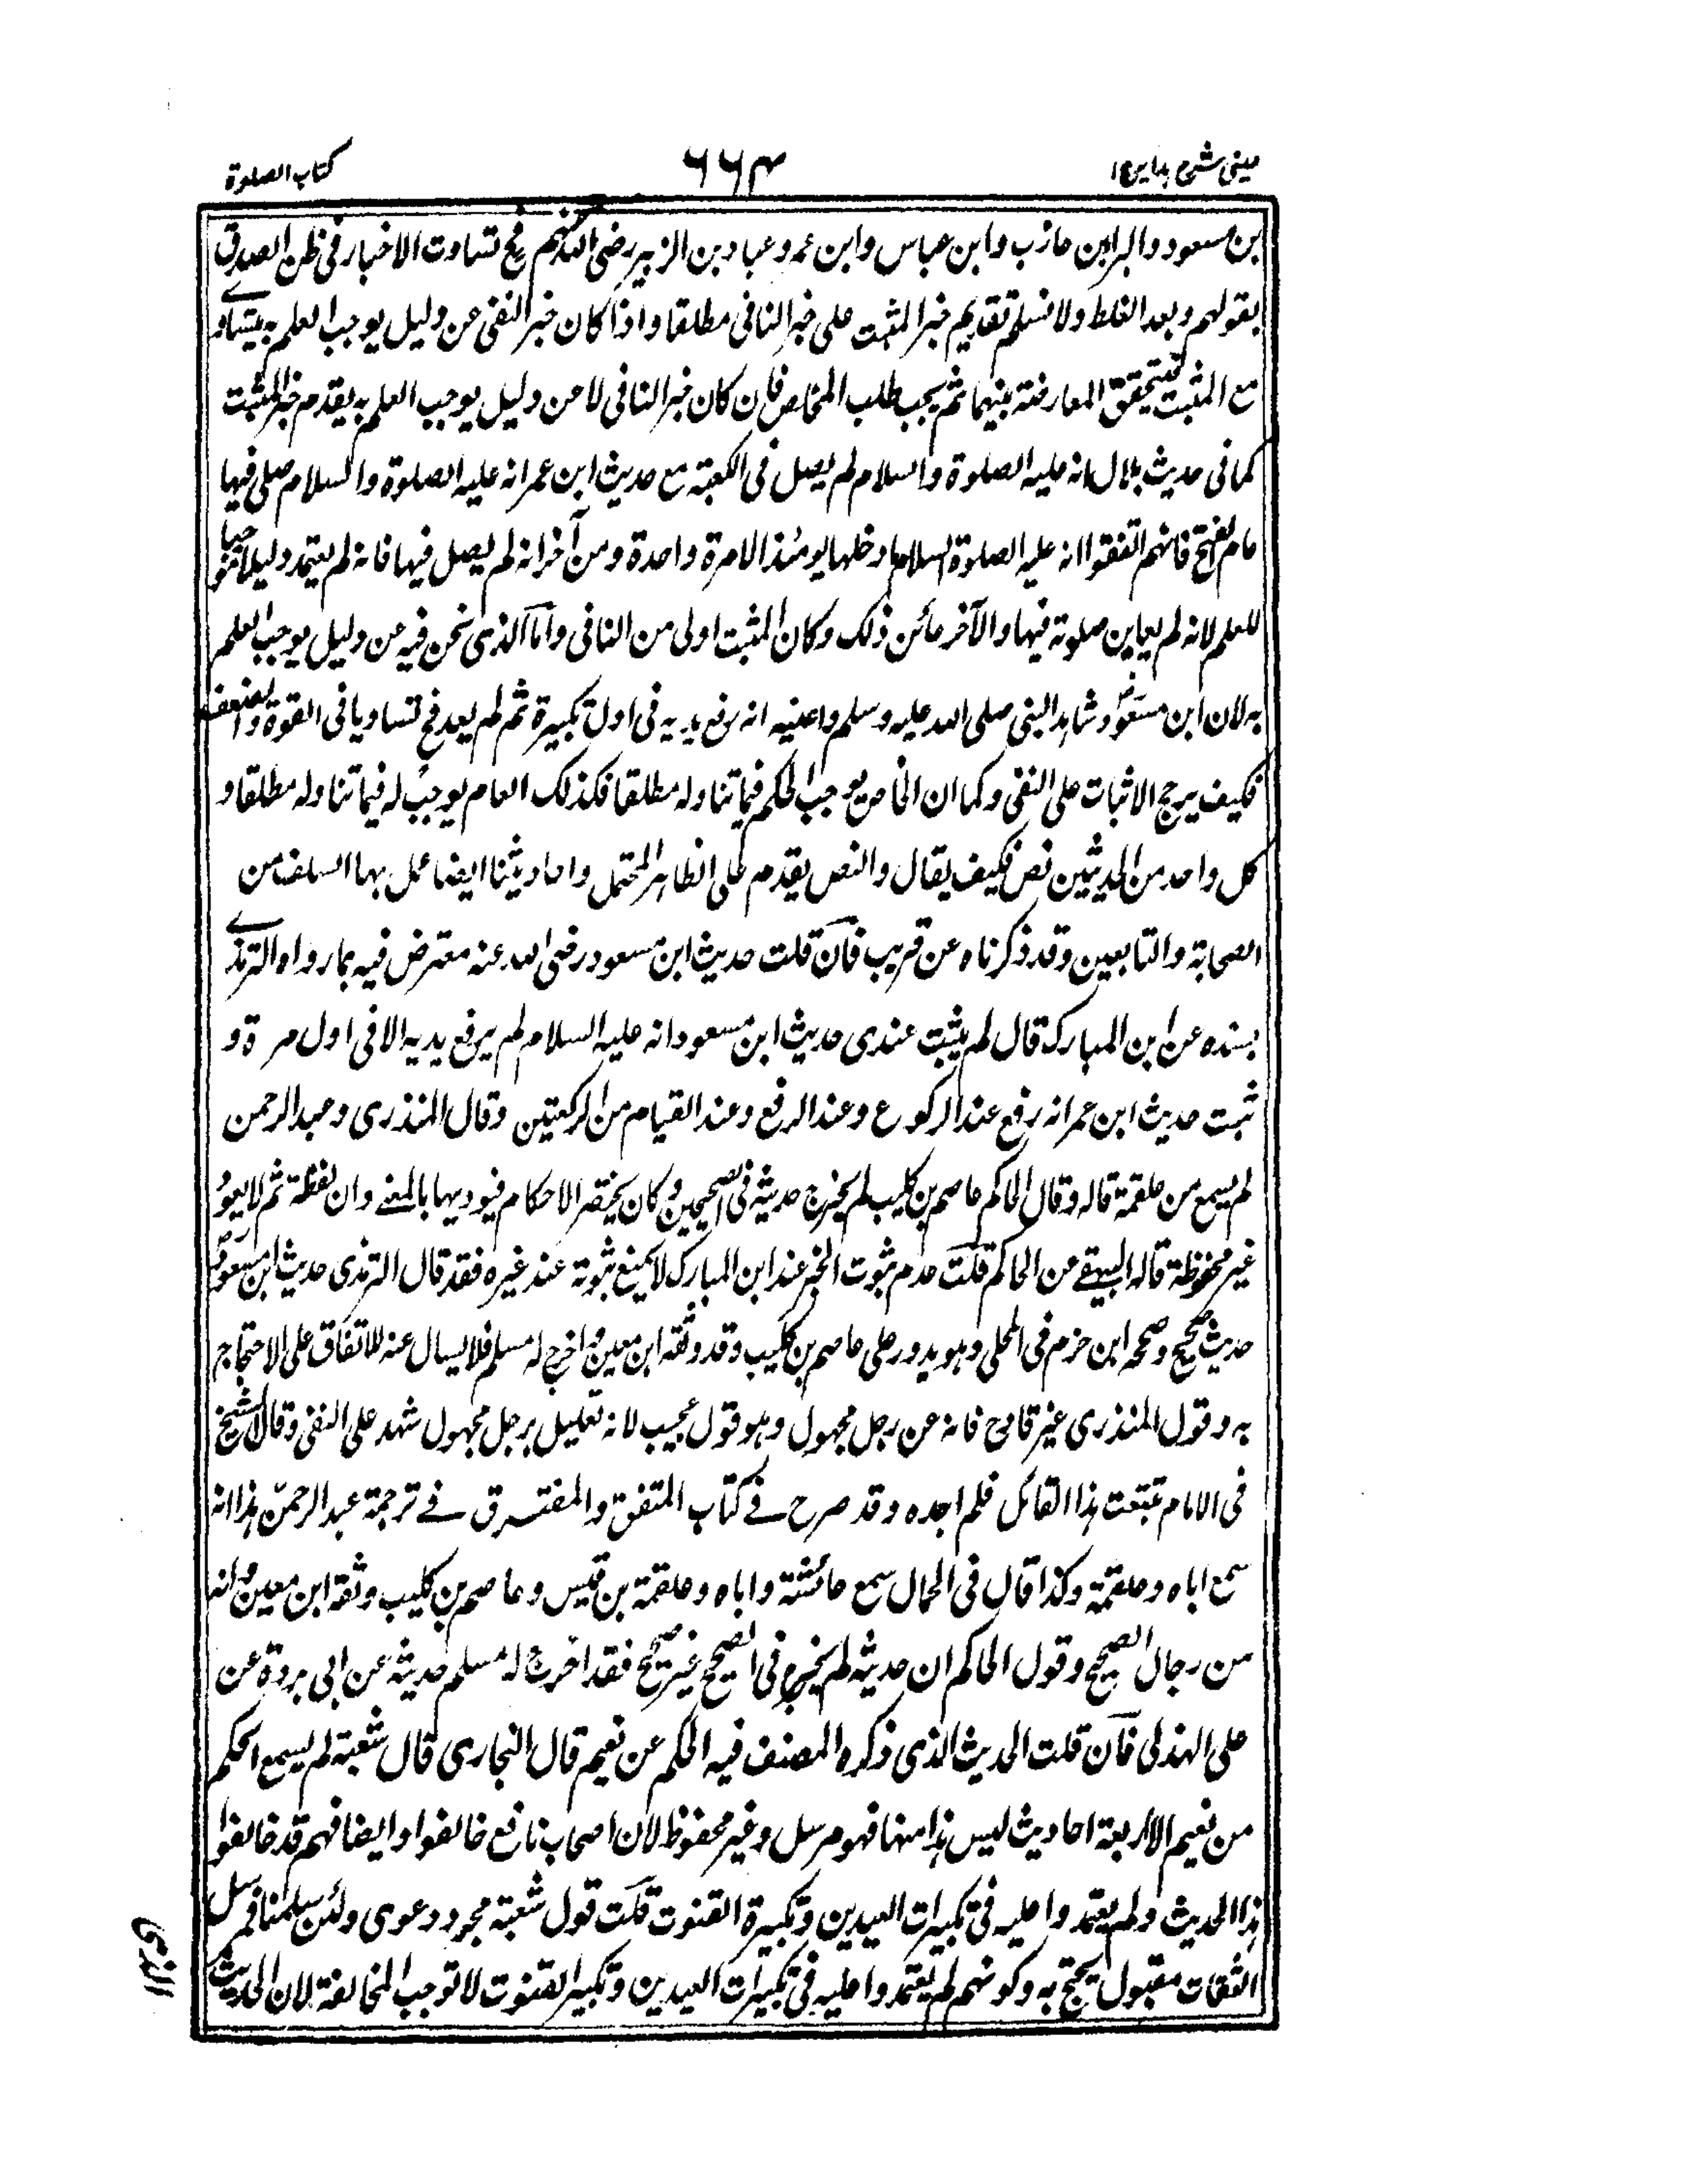 عینی شرح ہدایہ ج۱
۶۶۴
کتاب الصلوة
بن مسعود والبراء بن عازب وابن عباس وابن عمر وعباد بن الزبیر رضی الله عنهم فح تساوت الاخبار فی ظن الصدق
بقولهم وبعد الغلط ولا نسلم تقدیم خبر المثبت علی خبر النافی مطلقا واذا کان خبر النفی عن دلیل یوجب العلم به یتساوی
مع المثبت فیتحقق المعارضة بینهما ثم یجب طلب المخلص فان کان خبر النافی لا عن دلیل یوجب العلم به یقدم خبر المثبت
کما فی حدیث بلال انه علیه الصلوة والسلام لم یصل فی الکعبة مع حدیث ابن عمر انه علیه الصلوة والسلام صلی فیها
عام الفتح فانهم اتفقوا انه علیه الصلوة والسلام ما دخلها یومئذ الا مرة واحدة ومن آخر انه لم یصل فیها فانه لم یعتمد دلیلا موجبا
للعلم لانه لم یعاین صلوته فیها والآخر عائن ذلک وکان المثبت اولی من النافی واما الذی نحن فیه عن دلیل یوجب العلم
به لان ابن مسعود رض شاهد النبی صلی الله علیه وسلم واعنیه انه رفع یدیه فی اول تکبیرة ثم لم یعد فح تساویا فی القوة والضعف
فکیف یرجح الاثبات علی النفی وکما ان الخاص یوجب الحکم فیما تناوله مطلقا فکذلک العام یوجب له فیما تناوله مطلقا و
کل واحد من الحدیثین نص فکیف یقال والنص یقدم علی الظاهر المحتمل واحادیثنا ایضا عمل بها السلف من
الصحابة والتابعین وقد ذکرناه عن قریب فان قلت حدیث ابن مسعود رضی الله عنه معترض فیه بما رواه الترمذی
بسنده عن ابن المبارک قال لم یثبت عندی حدیث ابن مسعود انه علیه السلام لم یرفع یدیه الا فی اول مرة و
ثبت حدیث ابن عمر انه رفع عند الرکوع وعند الرفع وعند القیام من الرکعتین وقال المنذری وعبد الرحمن
لم یسمع من علقمة قاله وقال الحاکم عاصم بن کلیب لم یخرج حدیثه فی الصحیحین وکان یختصر الاحکام فیودیها بالمعنی وان لفظة ثم لا یعود
غیر محفوظة قاله البیهقی عن الحاکم قلت عدم ثبوت الخبر عند ابن المبارک لا یمنع ثبوته عند غیره فقد قال الترمذی حدیث ابن مسعود رض
حدیث صحیح وصححه ابن حزم فی المحلی وهو یدور علی عاصم بن کلیب وقد وثقه ابن معین واخرج له مسلم فلا یسال عنه للاتفاق علی الاحتجاج
به وقول المنذری غیر قادح فانه عن رجل مجهول وهو قول عجیب لانه تعلیل برجل مجهول شهد علی النفی وقال الشیخ
فی الامام تتبعت هذا القائل فلم اجده وقد صرح فی کتاب المتفق والمفترق فی ترجمة عبد الرحمن هذا انه
سمع اباه وعلقمة وکذا قال فی الکمال سمع عائشة واباه وعلقمة بن قیس وعاصم بن کلیب وثقه ابن معین وانه
من رجال الصحیح وقول الحاکم ان حدیثه لم یخرج فی الصحیح غیر صحیح فقد اخرج له مسلم حدیثه عن ابی بردة عن
علی الهدی فان قلت الحدیث الذی ذکره المصنف فیه الحکم عن نعیم قال البخاری قال شعبة لم یسمع الحکم
من نعیم الا اربعة احادیث لیس هذا منها فهو مرسل وغیر محفوظ لان اصحاب نافع خالفوا وایضا فهم قد خالفوا
هذا الحدیث ولم یعتمدوا علیه فی تکبیرات العیدین وتکبیرة القنوت قلت قول شعبة مجرد دعوی ولئن سلمنا فمرسل
الثقات مقبول یحتج به وکونهم لم یعتمدوا علیه فی تکبیرات العیدین وتکبیر القنوت لا توجب المخالفة لان الحدیث
الذی